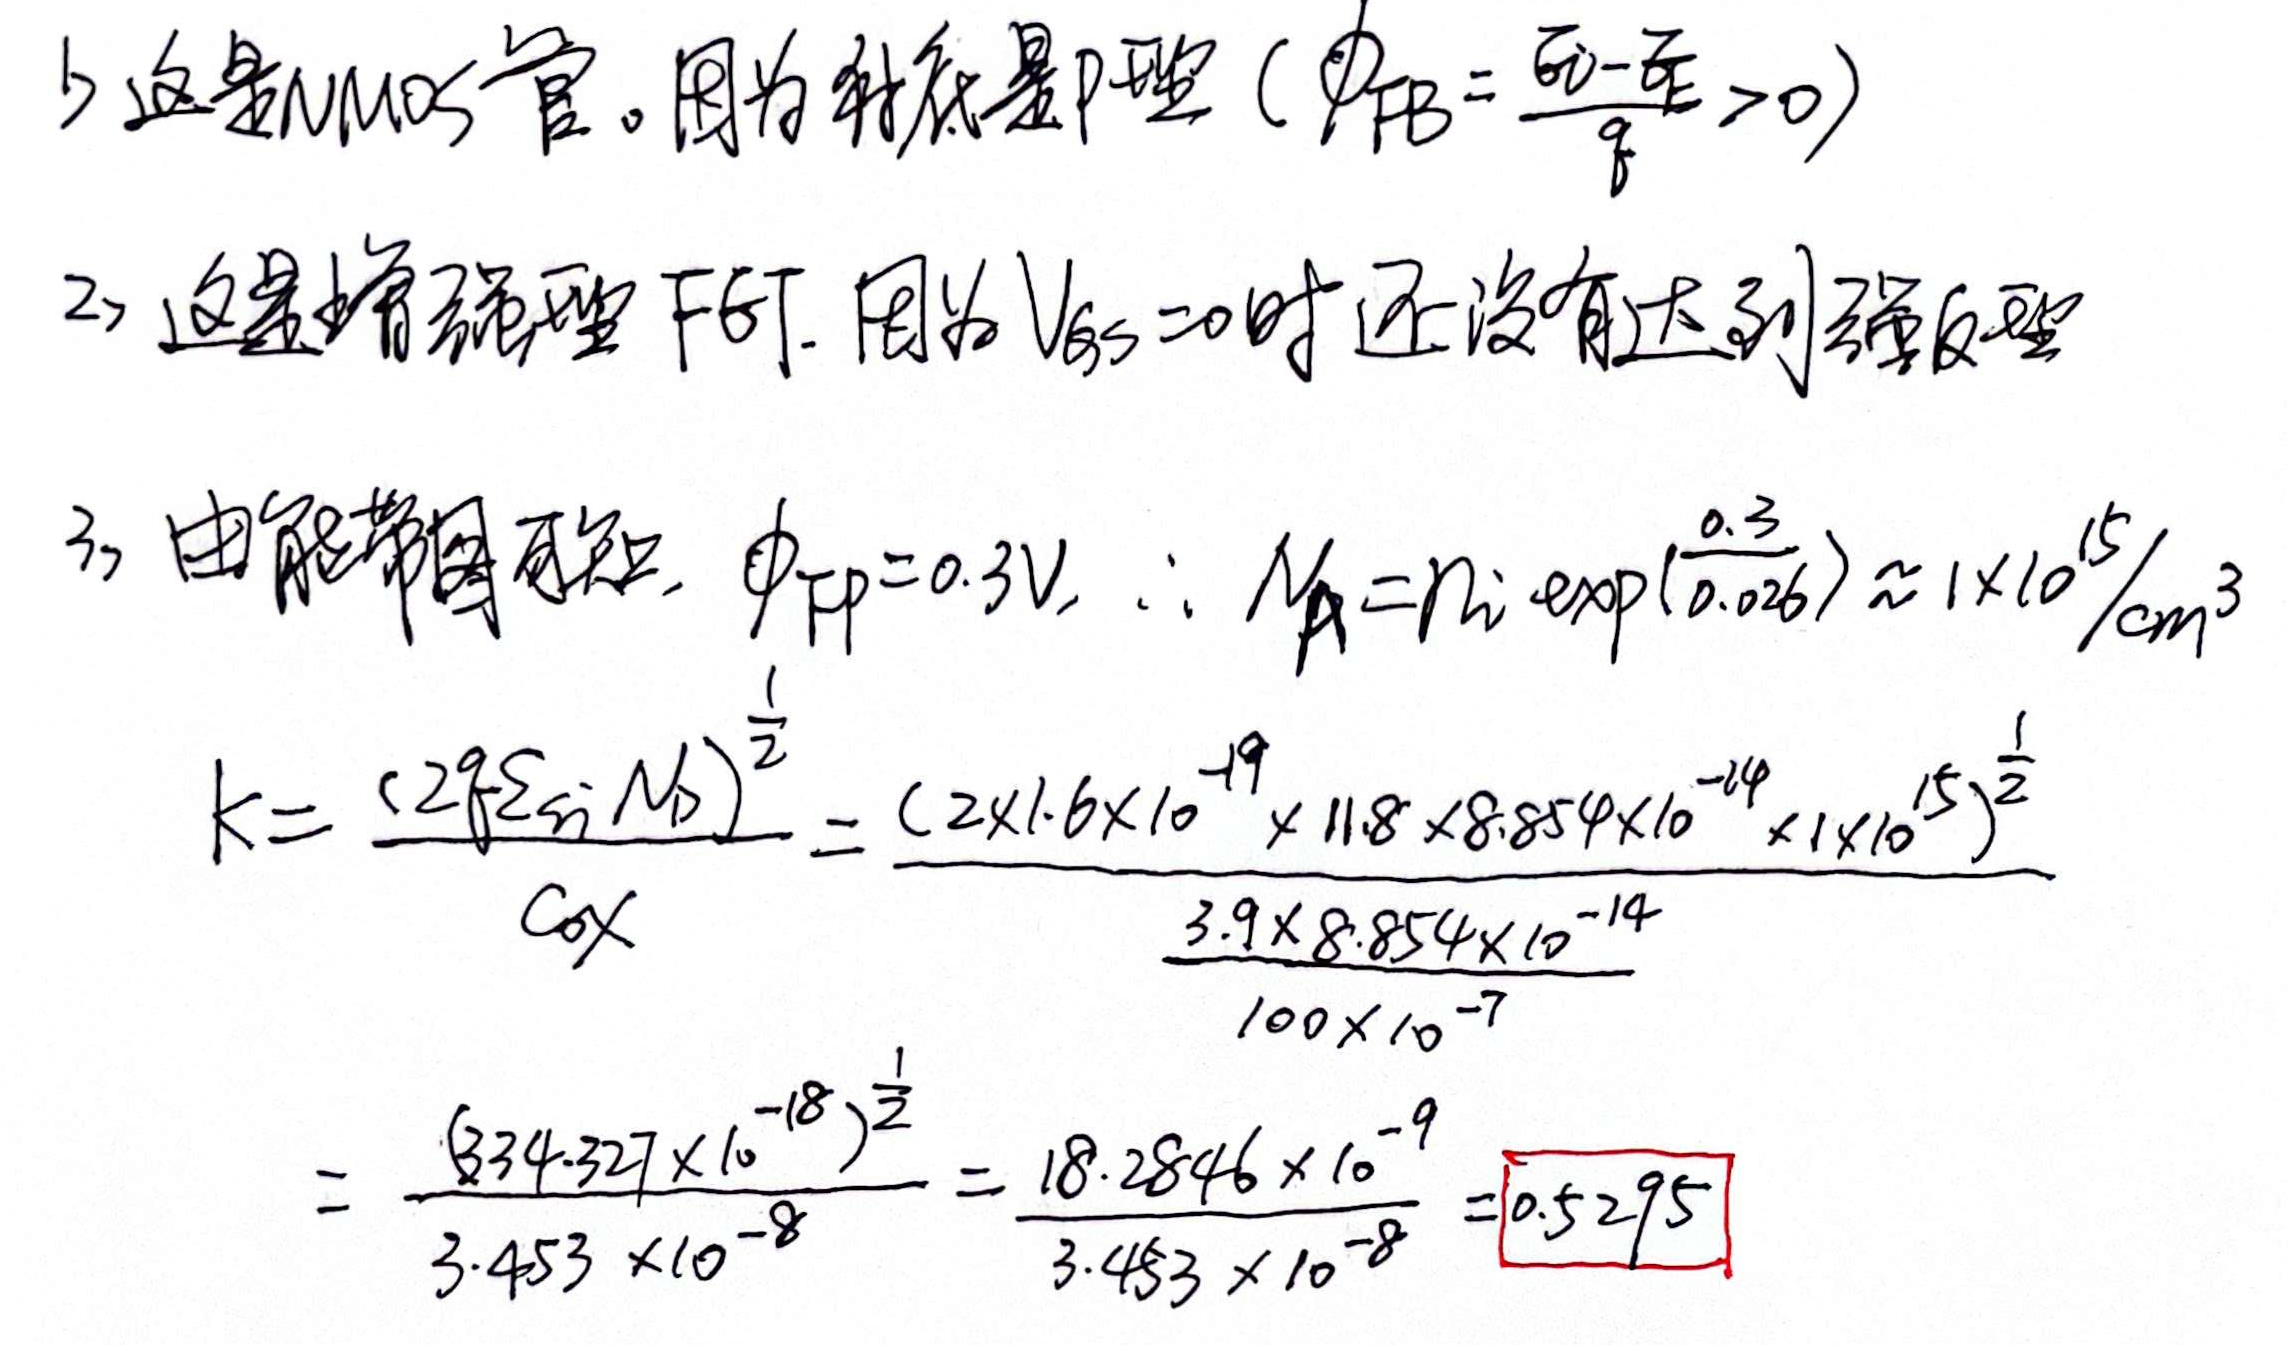 1) 这是NMOS管。因为衬底是P型 (φ_FB = (Ei-E_F)/q > 0)
2) 这是增强型 FET. 因为 V_GS=0时还没有达到强反型
3) 由能带图可知, φ_FP=0.3V, ∴ N_A=n_i exp(0.3/0.026) ≈ 1×10^15/cm^3
K= (2qε_si N_D)^(1/2) / Cox = (2×1.6×10^-19 × 11.8 ×8.854×10^-14 ×1×10^15)^(1/2) / (3.9×8.854×10^-14 / 100×10^-7)
= (334.327×10^-18)^(1/2) / 3.453×10^-8 = 18.2846×10^-9 / 3.453×10^-8 = 0.5295